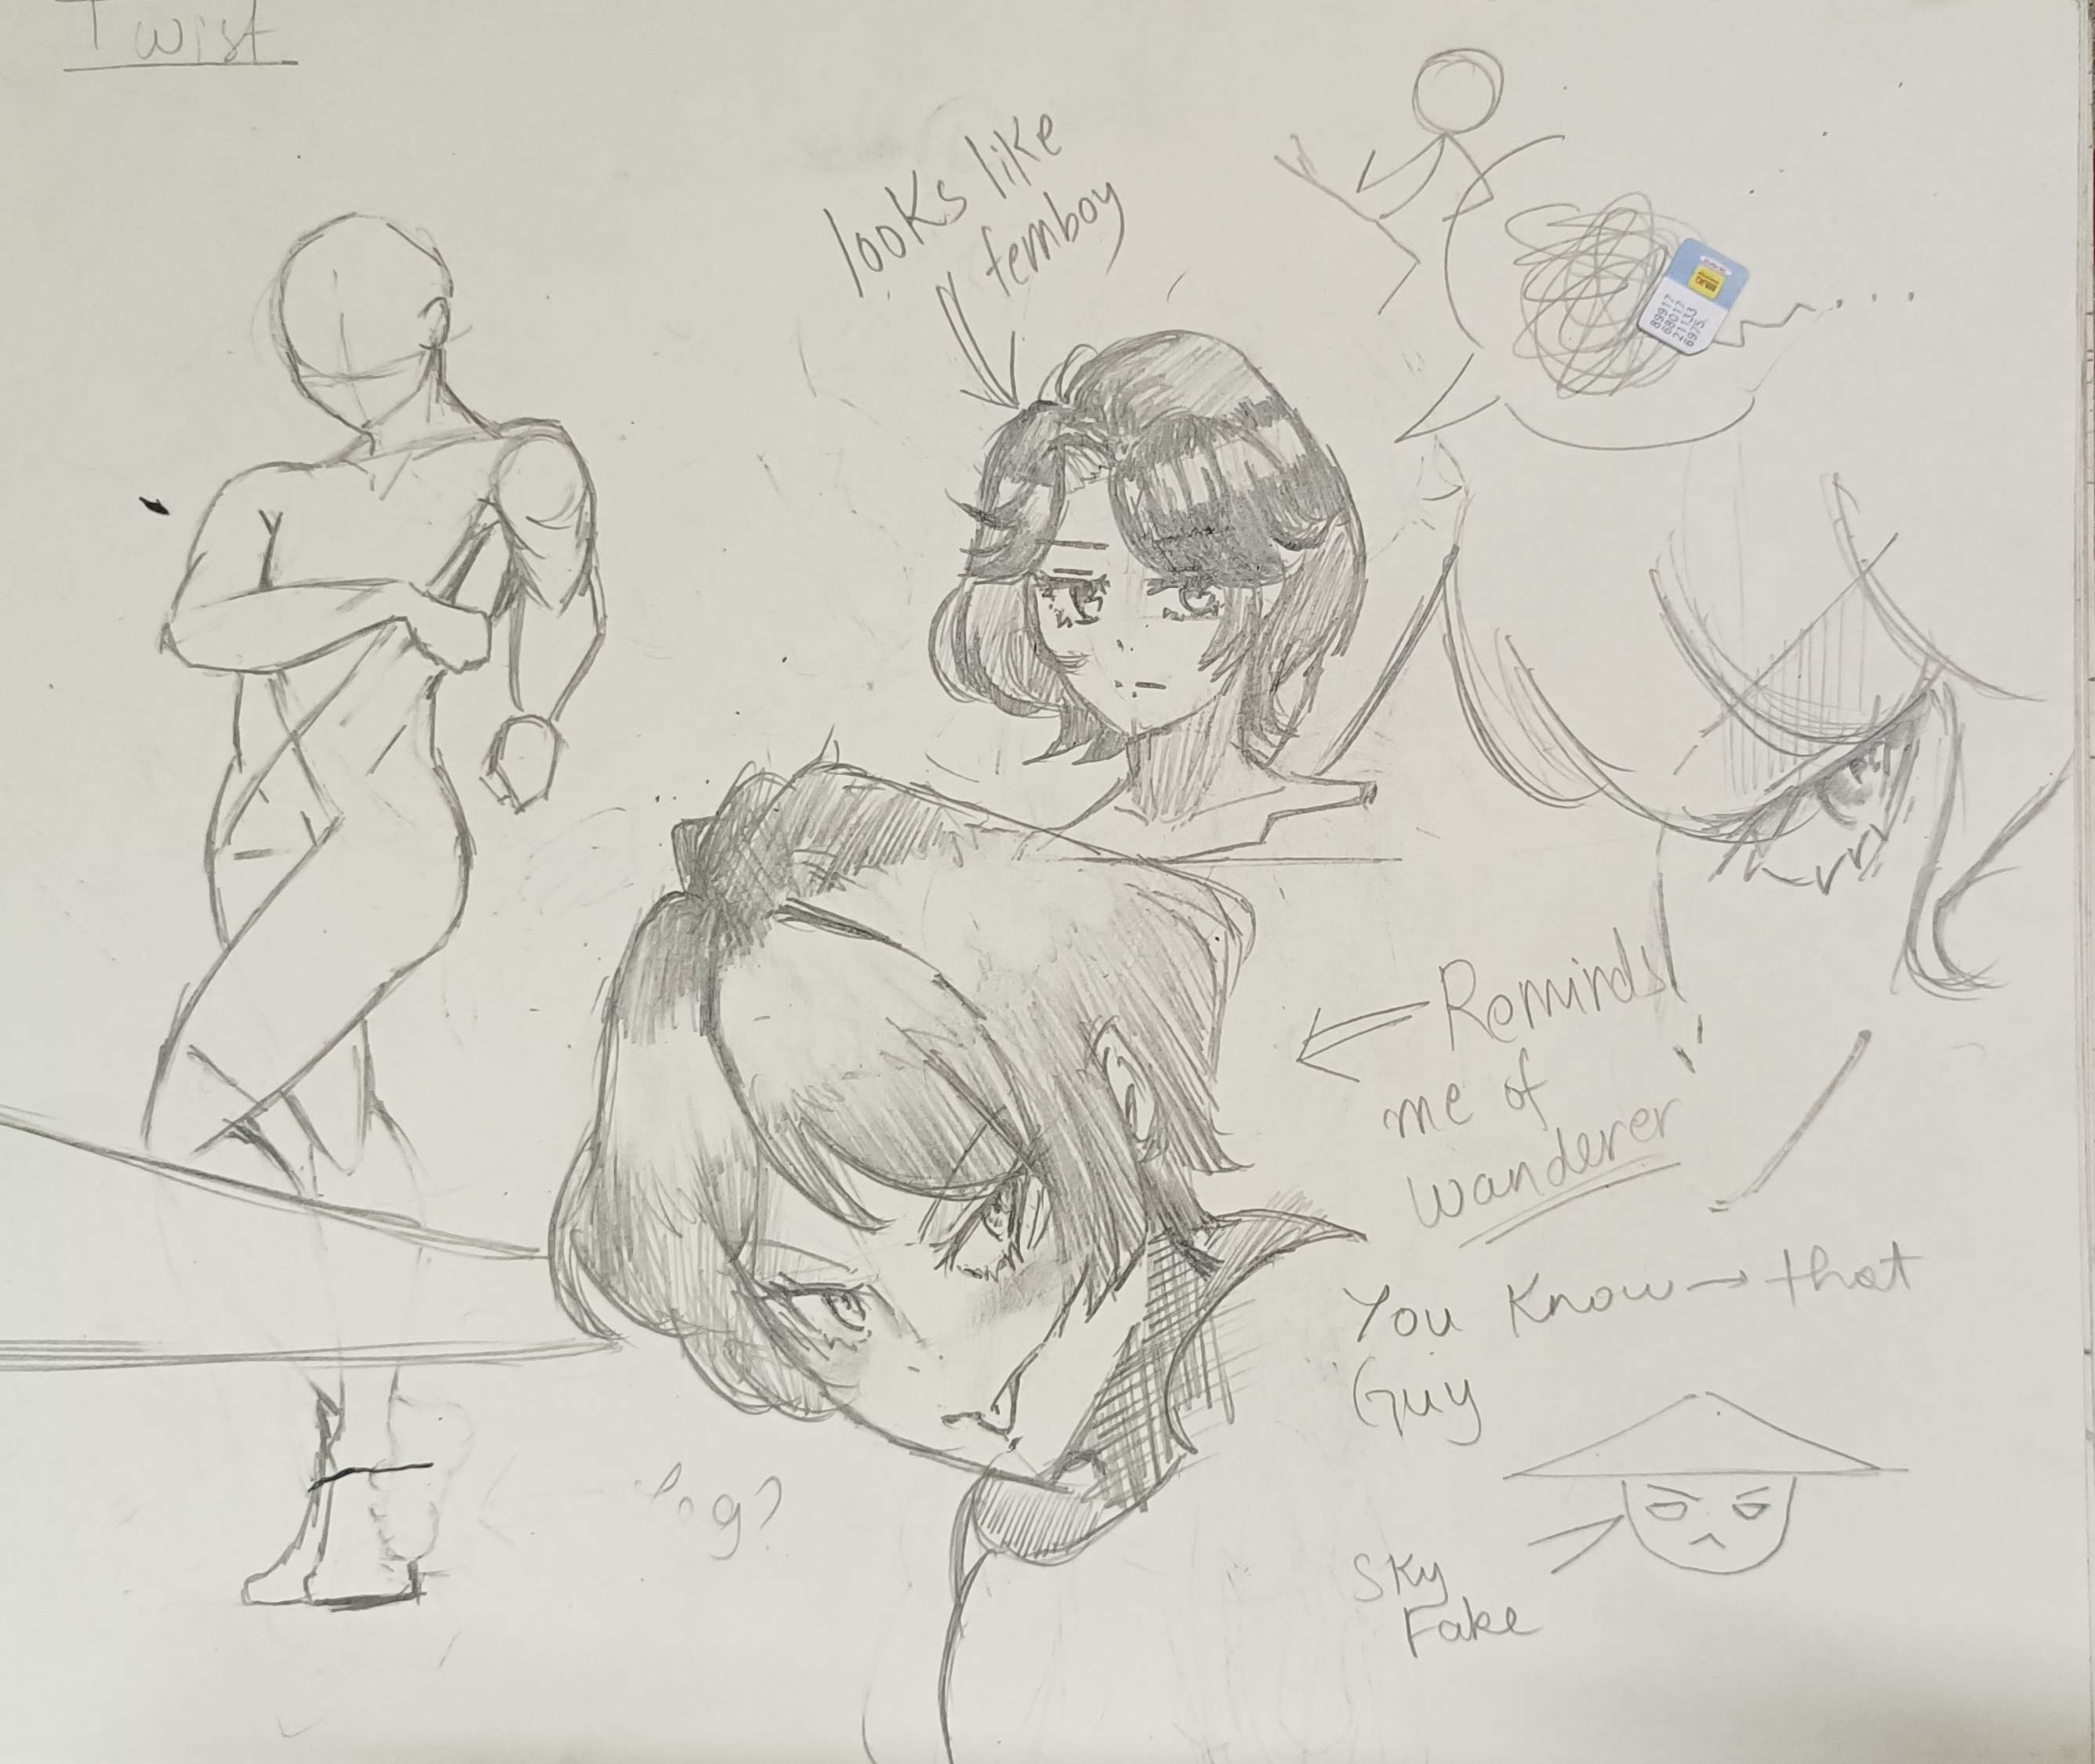 Twist
looks like
femboy
89917
68017
21153
6975
Reminds
me of
wanderer
You Know → that
Guy
Sky
Fake